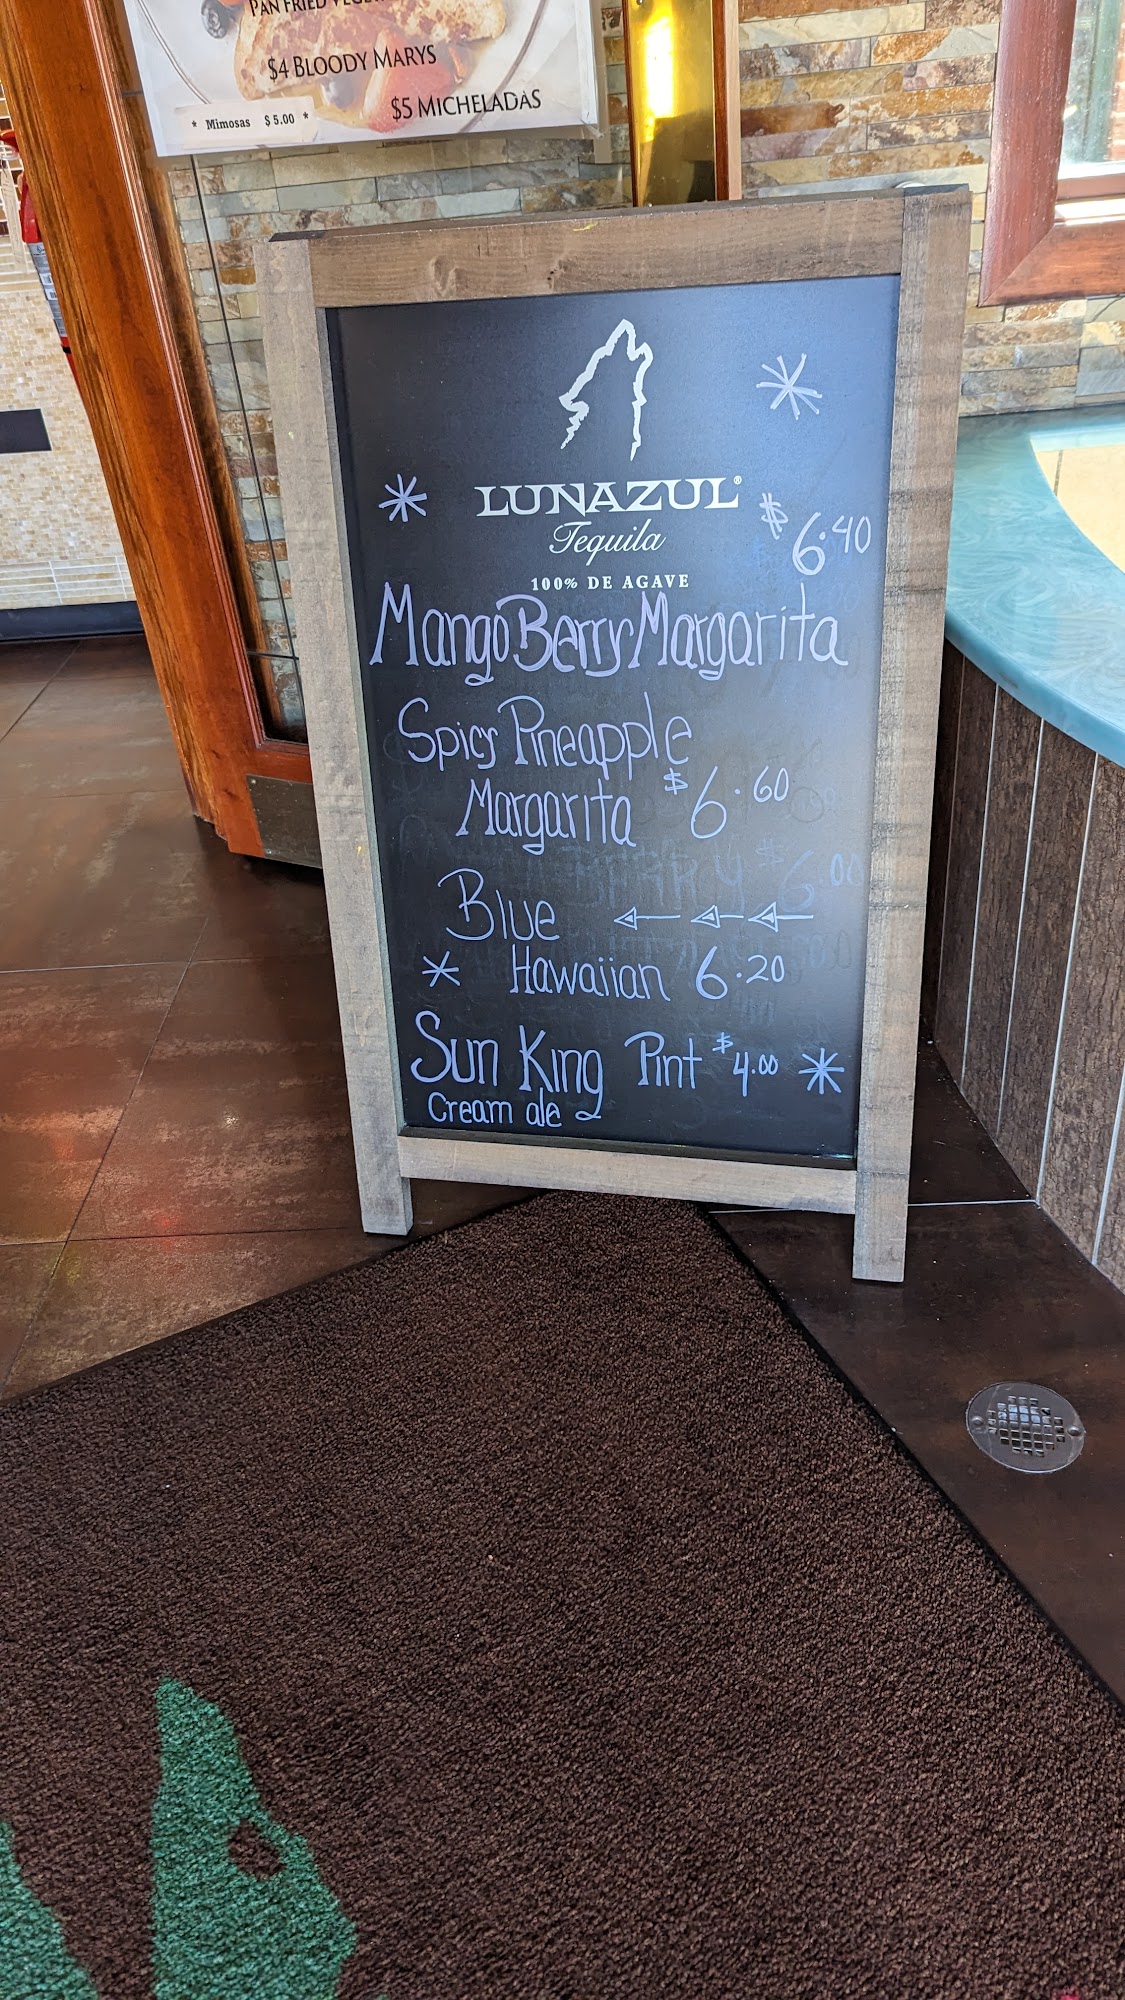 PAN FRIED
$4 BLOODY MARYS
$5 MICHELADAS
* Mimosas $5.00 *
LUNAZUL®
Tequila
100% DE AGAVE
$6.40
Mango Berry Margarita
Spicy Pineapple
Margarita $6.60
Blue
Hawaiian 6.20
Sun King Pint $4.00
Cream ale